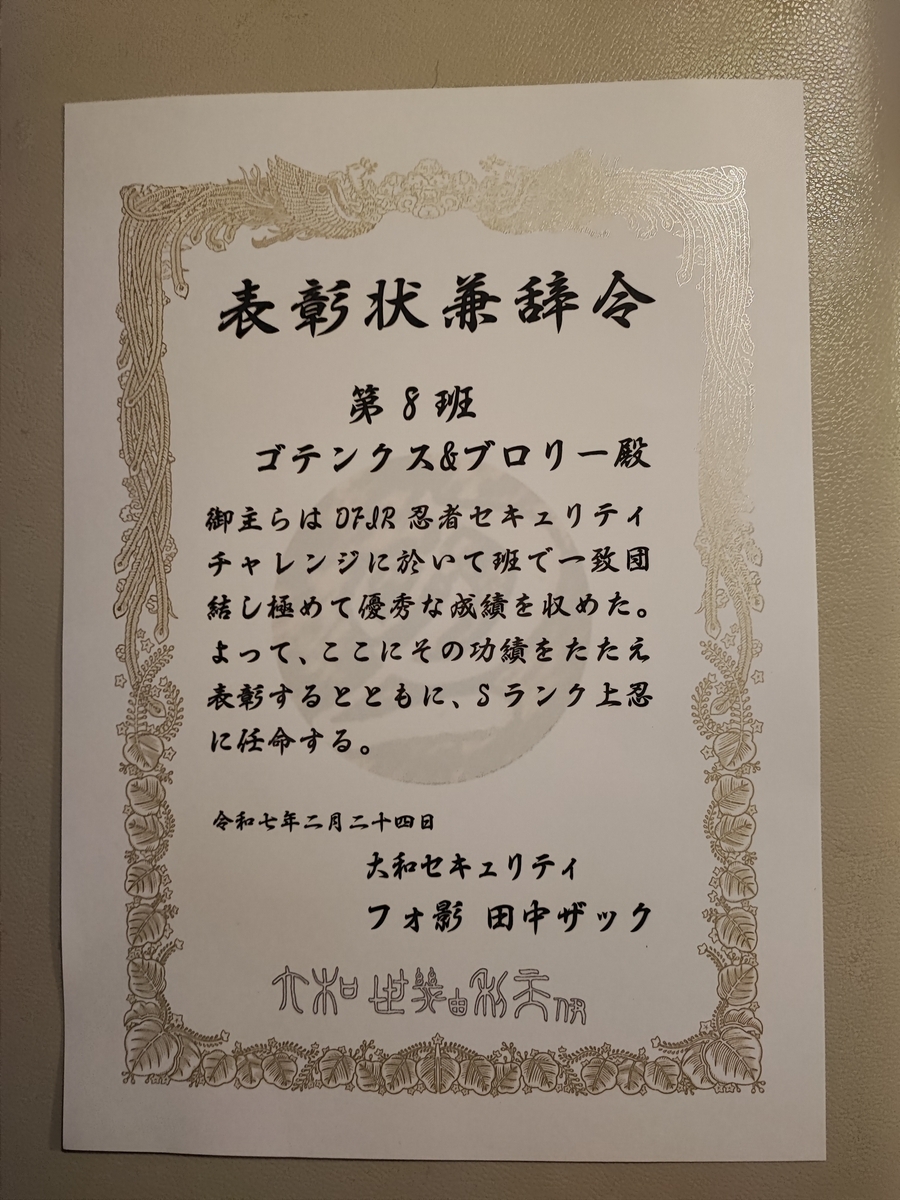 表彰状兼辞令
第8班
ゴテンクス&ブロリー殿
御主らは DFIR 忍者セキュリティ
チャレンジに於いて班で一致団
結し極めて優秀な成績を収めた。
よって、ここにその功績をたたえ
表彰するとともに、Sランク上忍
に任命する。
令和七年二月二十四日
大和セキュリティ
フォ影 田中ザック